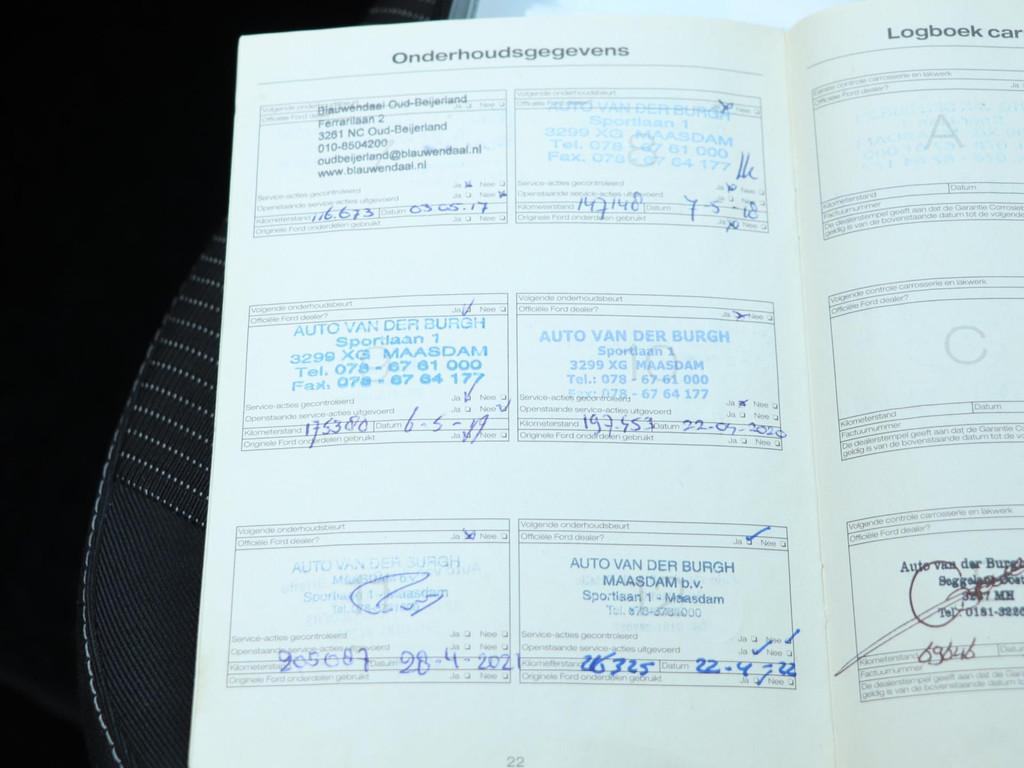 Onderhoudsgegevens
Volgende onderhoudsbeurt
Officiële Ford dealer? Ja Nee
Blauwendaal Oud-Beijerland
Ferrarilaan 2
3261 NC Oud-Beijerland
010-8504200
oudbeijerland@blauwendaal.nl
www.blauwendaal.nl
Service-acties gecontroleerd Ja Nee
Openstaande service-acties uitgevoerd Ja Nee
Kilometerstand 116.673 Datum 03-05-17
Originele Ford onderdelen gebruikt
Volgende onderhoudsbeurt
Officiële Nee
AUTO VAN DER BURGH
Sportlaan 1
3299 XG MAASDAM
Tel. 078 - 67 61 000
Fax. 078 - 67 64 177
Service-acties gecontroleerd Ja Nee
Openstaande service-acties uitgevoerd Nee
Kilometerstand 147148 Datum 7-5-18
Originele Ford onderdelen gebruikt Ja Nee
Volgende onderhoudsbeurt
Officiële Ford dealer? Ja Nee
AUTO VAN DER BURGH
Sportlaan 1
3299 XG MAASDAM
Tel. 078 - 67 61 000
Fax. 078 - 67 64 177
Service-acties gecontroleerd Ja Nee
Openstaande service-acties uitgevoerd Ja Nee
Kilometerstand 175380 Datum 6-5-19
Originele Ford onderdelen gebruikt Ja Nee
Volgende onderhoudsbeurt
Officiële Ford dealer? Ja Nee
AUTO VAN DER BURGH
Sportlaan 1
3299 XG MAASDAM
Tel.: 078 - 67 61 000
Fax: 078 - 67 64 177
Service-acties gecontroleerd Ja Nee
Openstaande service-acties uitgevoerd Ja Nee
Kilometerstand 197.453 Datum 22-04-2020
Originele Ford onderdelen gebruikt Ja Nee
Volgende onderhoudsbeurt
Officiële Ford dealer? Ja Nee
AUTO VAN DER BURGH
MAASDAM b.v.
Sportlaan 1 - Maasdam
Service-acties gecontroleerd Ja Nee
Openstaande service-acties uitgevoerd Ja Nee
Kilometerstand 205087 Datum 28-4-2021
Originele Ford onderdelen gebruikt Ja Nee
Volgende onderhoudsbeurt
Officiële Ford dealer? Ja Nee
AUTO VAN DER BURGH
MAASDAM b.v.
Sportlaan 1 - Maasdam
Tel. 078-6761000
Service-acties gecontroleerd Ja Nee
Openstaande service-acties uitgevoerd Ja Nee
Kilometerstand 216325 Datum 22-4-22
Originele Ford onderdelen gebruikt Ja Nee
22
Logboek car
controle carrosserie en lakwerk
Officiële Ford dealer? Ja
A
Kilometerstand Datum
Factuurnummer
De dealerstempel geeft aan dat de Garantie Carrosserie
geldig is van de bovenstaande datum tot de volgende
Volgende controle carrosserie en lakwerk
Officiële Ford dealer?
C
Kilometerstand Datum
Factuurnummer
De dealerstempel geeft aan dat de Garantie Carr
geldig is van de bovenstaande datum tot de vo
Volgende controle carrosserie en lakwerk
Officiële Ford dealer?
Auto van der Burgh
3267 MH
Tel. 0181-322
Kilometerstand 69646
Factuurnummer
De dealerstempel geeft aan dat de Gara
geldig is van de bovenstaande datum